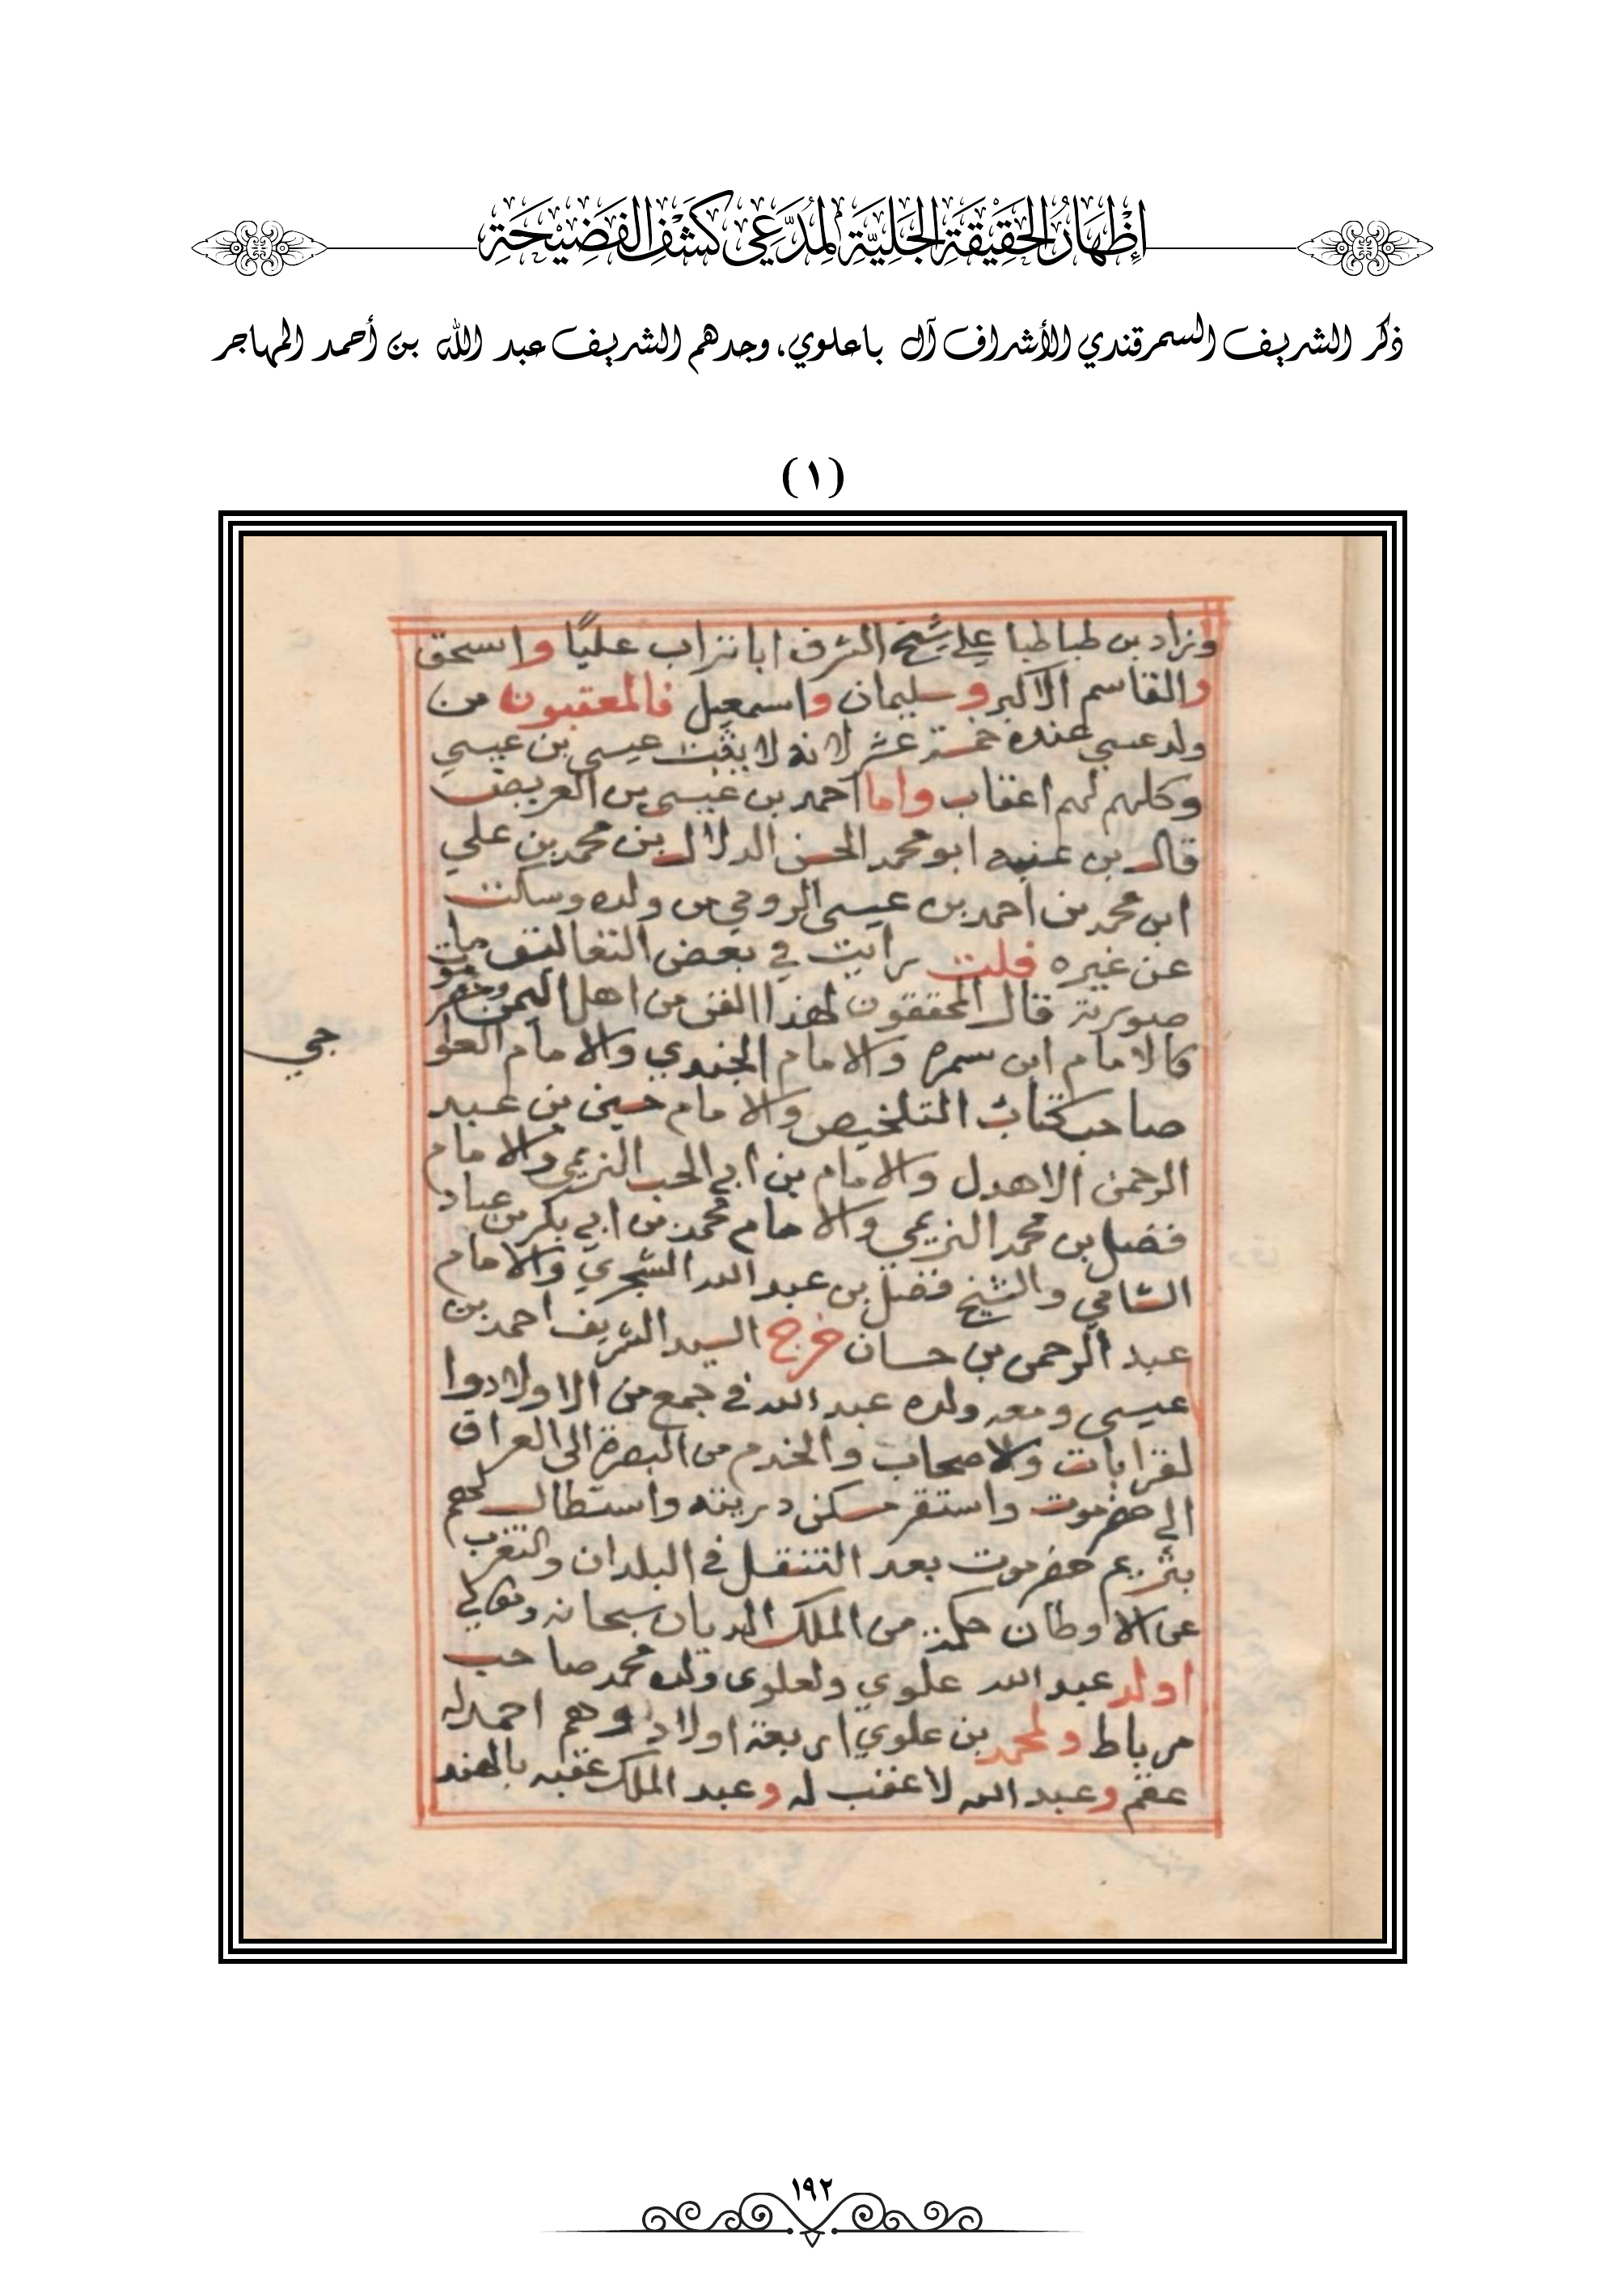 إِظْهَارُ الحَقِيْقَةِ الجَلِيَّةِ لِمُدَّعِي كَشْفِ الفَضِيْحَةِ
ذكر الشريف السمرقندي الأشراف آل باعلوي، وجدهم الشريف عبد الله بن أحمد المهاجر
(١)
وزاد بن طباطبا علي شيخ الشرف ابا تراب عليًا واسحق
والقاسم الاكبر وسليمان واسمعيل فالمعقبون من
ولد عيسي عنده خمسة عشر لانه لا يثبت عيسى بن عيسي
وكلهم لهم اعقاب واما احمد بن عيسى بن العريض
قال بن عنبه ابو محمد الحسن الدلال بن محمد بن علي
ابن محمد بن احمد بن عيسى الرومي من ولده وسالت
عن غيره قلت رايت في بعض التعاليق ما
صورته قال المحققون لهذا الفن من اهل اليمن وحضرموت
كالامام ابن سمره والامام الجندي والامام العلو
جي
صاحب كتاب التلخيص والامام حسين بن عبد
الرحمن الاهدل والامام بن ابي الحب التريمي والامام
فضل بن محمد التريمي والامام محمد بن ابي بكر بن عباد
الشامي والشيخ فضل بن عبد الله الشجري والامام
عبد الرحمن بن حسان خرج السيد الشريف احمد بن
عيسى ومعه ولده عبد الله في جمع من الاولاد وا
لقرابات والاصحاب والخدم من البصرة الى العراق
الي حضرموت واستقر مسكن ذريته واستطال لهم
بتريم حضرموت بعد التنقل في البلدان والتغرب
عن الاوطان حكمة من الملك الديان سبحانه وتعالي
اولد عبد الله علوي ولعلوي ولده محمد صاحب
مرباط ولمحمد بن علوي اربعة اولاد وهم احمد له
عقم وعبد الله لا عقب له وعبد الملك عقبه بالهند
١٩٢